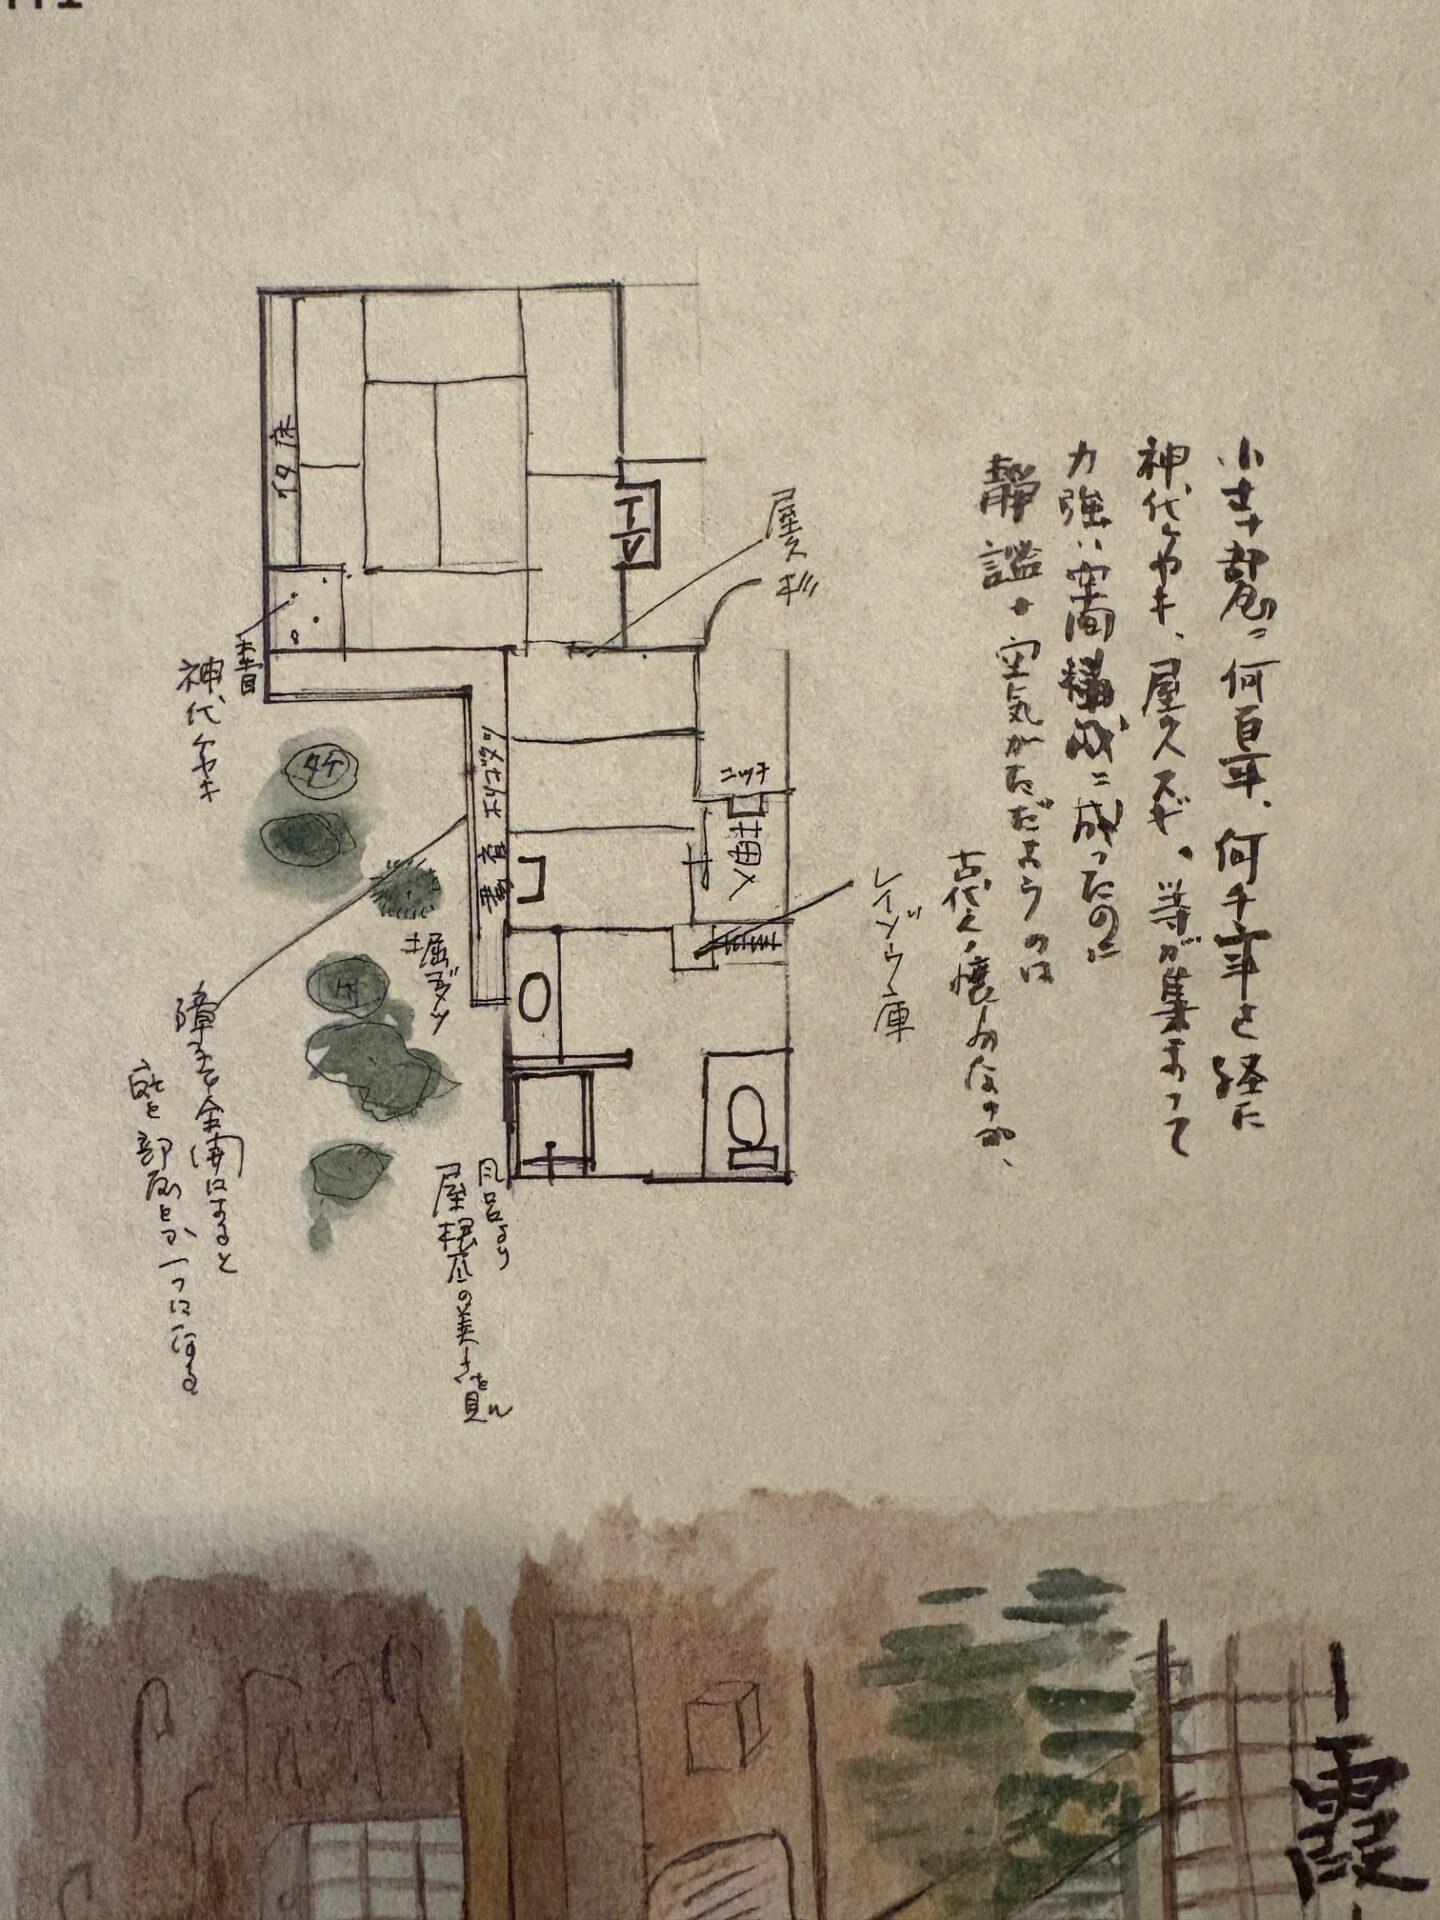 小さな部屋に何百年、何千年を経た
神代ケヤキ、屋久スギ、等が集まって
力強い空間構成に成ったのに
静謐な空気がただようのは
古代への憧れなのか、
屋久
杉
床
TV
踏込
神代ケヤキ
タケ
ニッチ
押入
レイゾウ庫
障子を全開にすると
庭と部屋とが一つになる
風呂より
屋根瓦の美しさを見る
霞